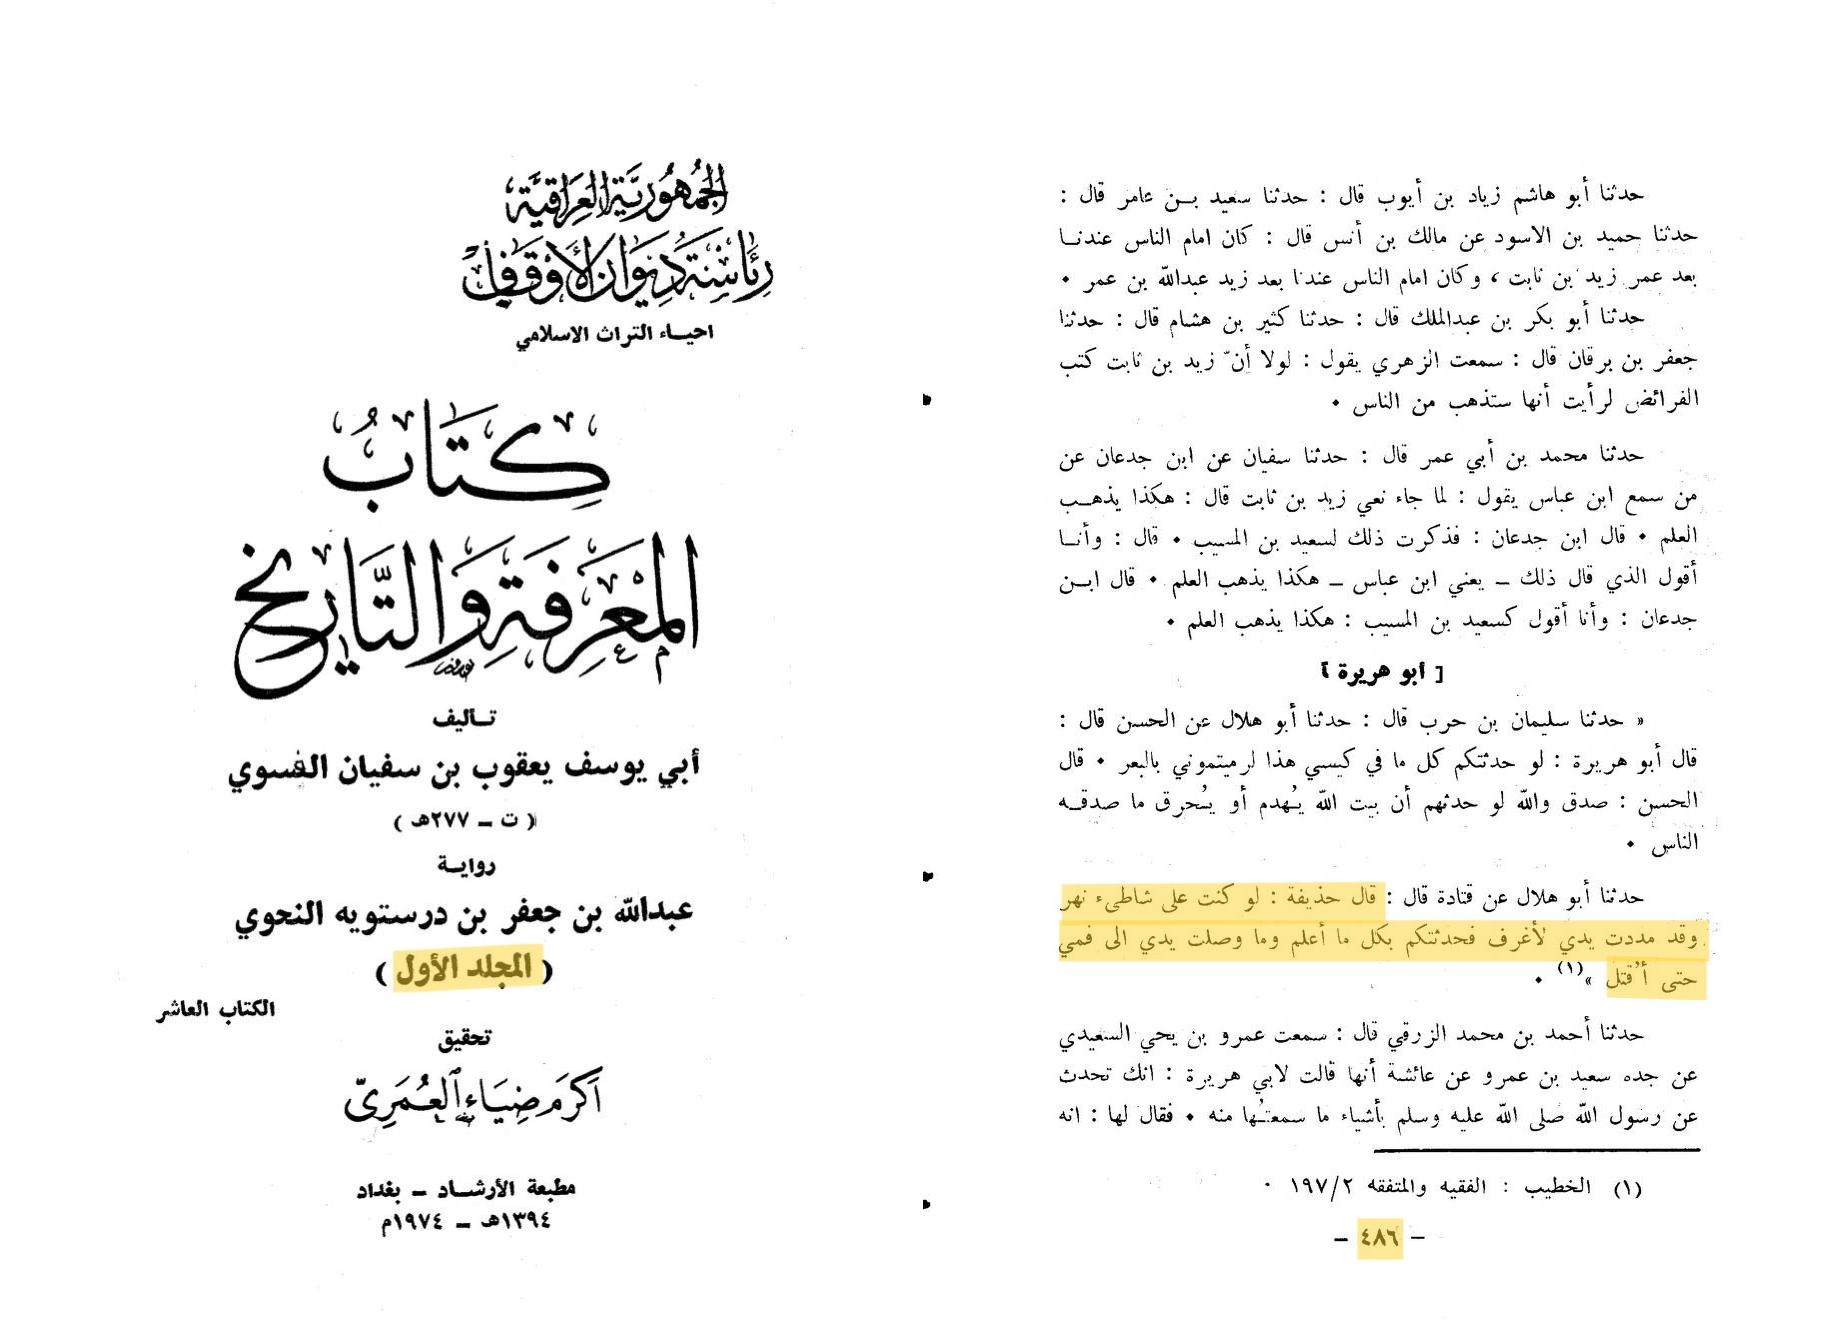 الجمهورية العراقية
رئاسة ديوان الأوقاف
احياء التراث الاسلامي
كتاب
المعرفة والتاريخ
تأليف
أبي يوسف يعقوب بن سفيان الفسوي
( ت ــ ٢٧٧هـ )
رواية
عبدالله بن جعفر بن درستويه النحوي
( المجلد الأول )
الكتاب العاشر
تحقيق
أكرم ضياء العمري
مطبعة الأرشاد ــ بغداد
١٣٩٤هـ ــ ١٩٧٤م
حدثنا أبو هاشم زياد بن أيوب قال : حدثنا سعيد بن عامر قال :
حدثنا حميد بن الاسود عن مالك بن أنس قال : كان امام الناس عندنا
بعد عمر زيد بن ثابت ، وكان امام الناس عندنا بعد زيد عبدالله بن عمر .
حدثنا أبو بكر بن عبدالملك قال : حدثنا كثير بن هشام قال : حدثنا
جعفر بن برقان قال : سمعت الزهري يقول : لولا أنّ زيد بن ثابت كتب
الفرائض لرأيت أنها ستذهب من الناس .
حدثنا محمد بن أبي عمر قال : حدثنا سفيان عن ابن جدعان عن
من سمع ابن عباس يقول : لما جاء نعي زيد بن ثابت قال : هكذا يذهب
العلم . قال ابن جدعان : فذكرت ذلك لسعيد بن المسيب . قال : وأنا
أقول الذي قال ذلك ــ يعني ابن عباس ــ هكذا يذهب العلم . قال ابن
جدعان : وأنا أقول كسعيد بن المسيب : هكذا يذهب العلم .
[ أبو هريرة ]
« حدثنا سليمان بن حرب قال : حدثنا أبو هلال عن الحسن قال :
قال أبو هريرة : لو حدثتكم كل ما في كيسي هذا لرميتموني بالبعر . قال
الحسن : صدق والله لو حدثهم أن بيت الله يُهدم أو يُحرق ما صدقه
الناس .
حدثنا أبو هلال عن قتادة قال : قال حذيفة : لو كنت على شاطىء نهر
وقد مددت يدي لأغرف فحدثتكم بكل ما أعلم وما وصلت يدي الى فمي
حتى أُقتل »(١) .
حدثنا أحمد بن محمد الزرقي قال : سمعت عمرو بن يحي السعيدي
عن جده سعيد بن عمرو عن عائشة أنها قالت لابي هريرة : انك تحدث
عن رسول الله صلى الله عليه وسلم بأشياء ما سمعتُها منه . فقال لها : انه
(١) الخطيب : الفقيه والمتفقه ١٩٧/٢ .
– ٤٨٦ –